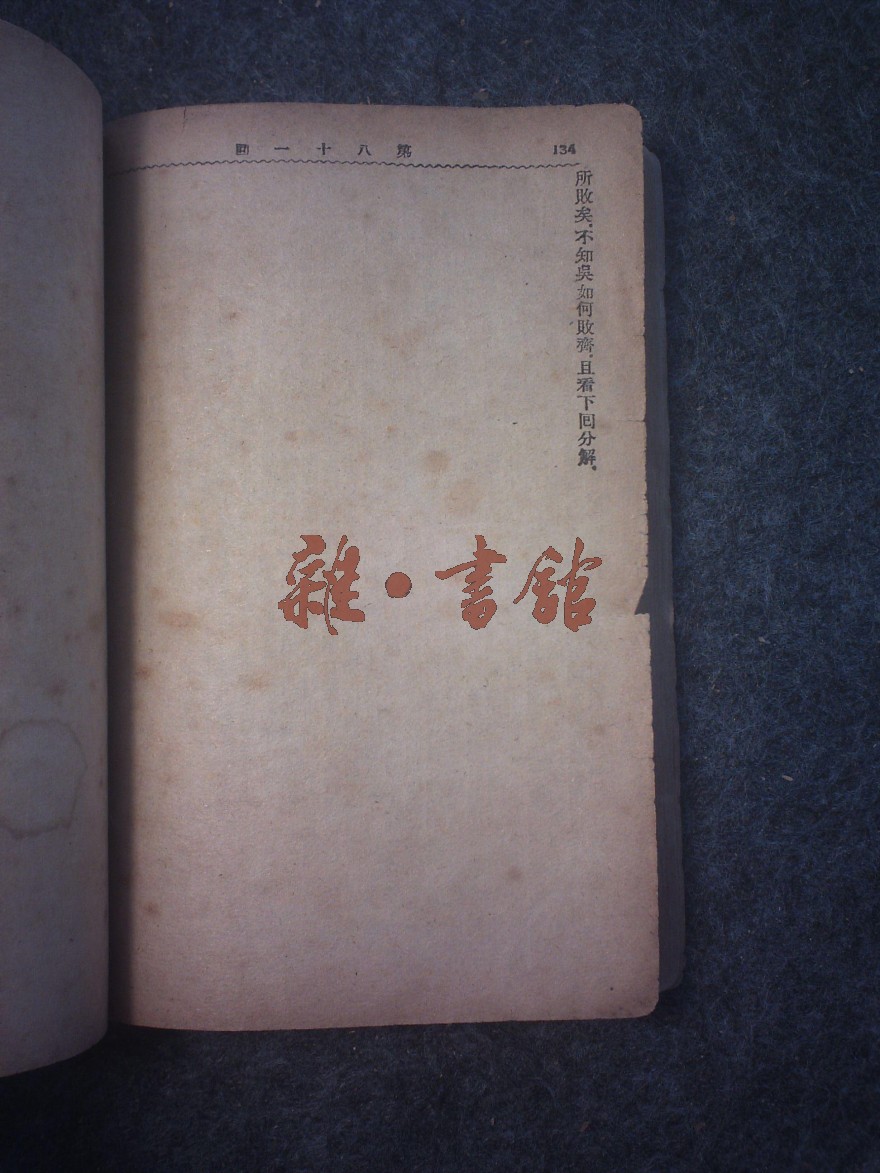 134
第八十一囬
所敗矣.不知吳如何敗齊.且看下囘分解.
雜·書館